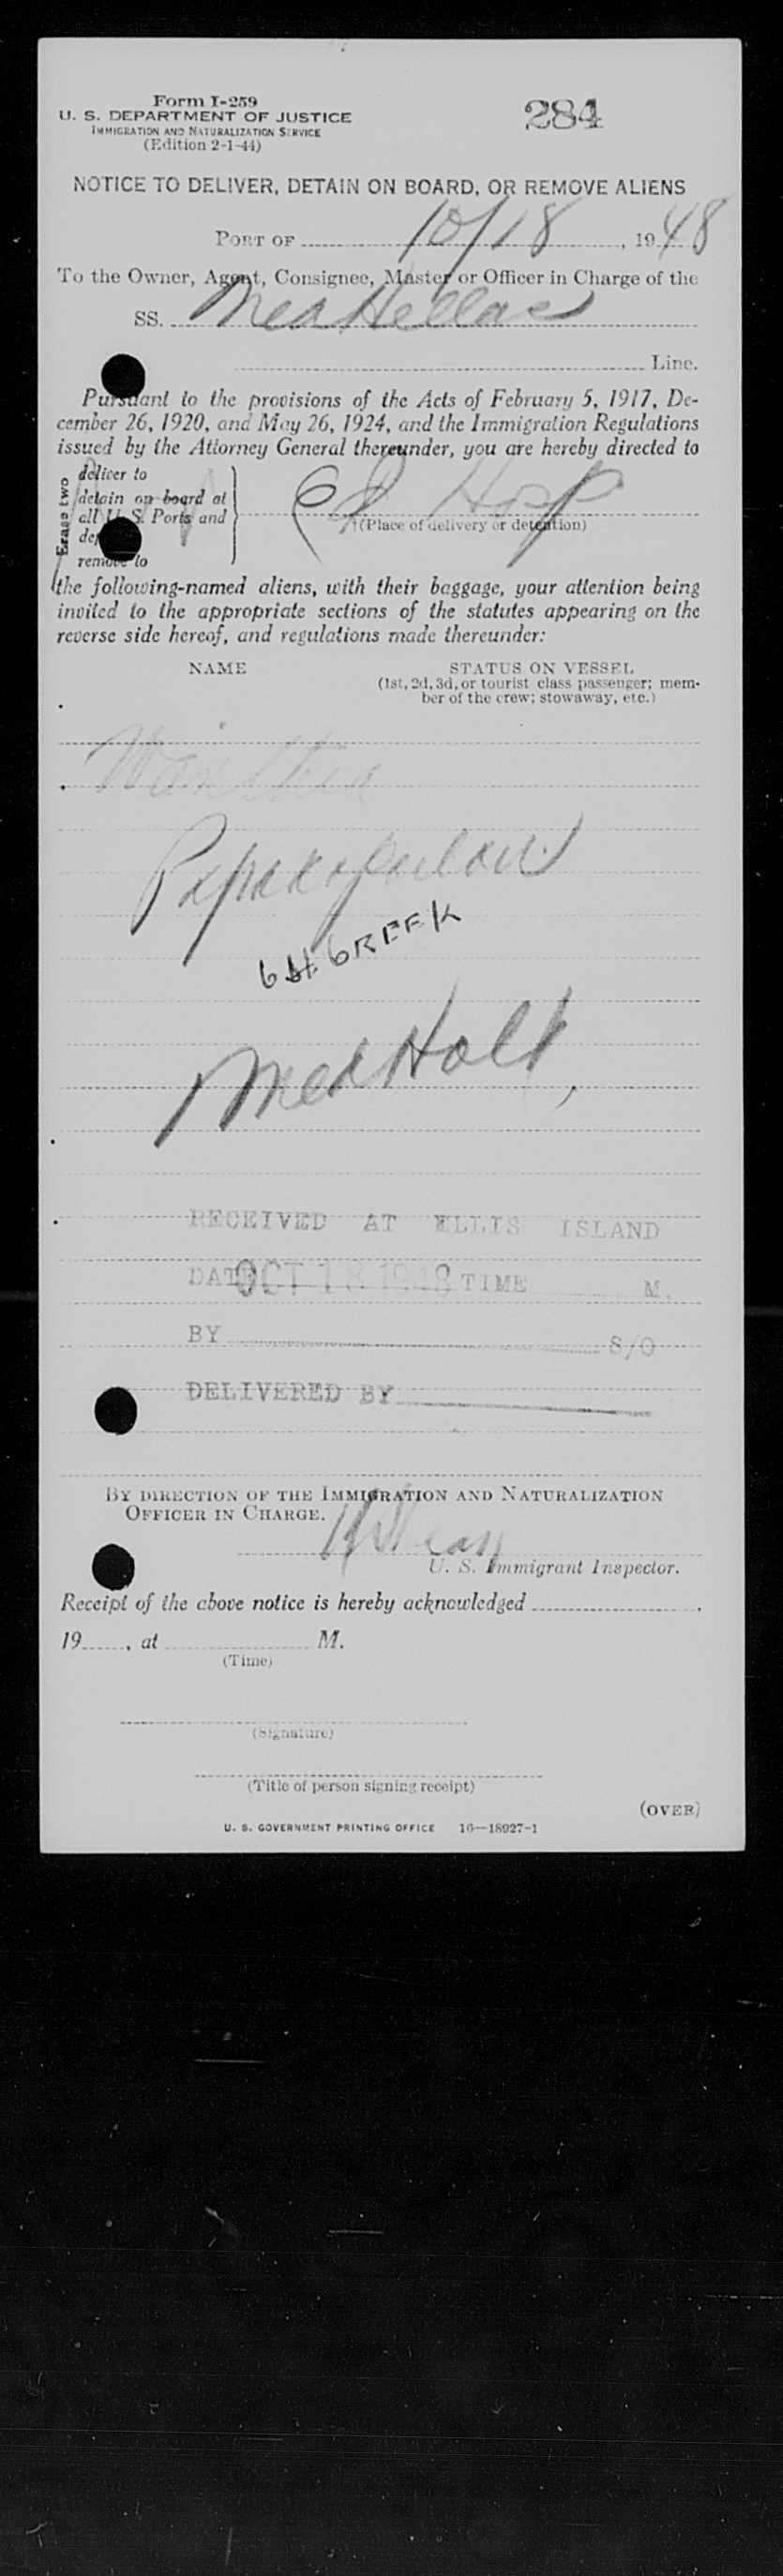 Form I-259
U. S. DEPARTMENT OF JUSTICE
IMMIGRATION AND NATURALIZATION SERVICE
(Edition 2-1-44)
284
NOTICE TO DELIVER, DETAIN ON BOARD, OR REMOVE ALIENS
PORT OF 10/18, 1948
To the Owner, Agent, Consignee, Master or Officer in Charge of the
SS. Nea Hellas
Line.
Pursuant to the provisions of the Acts of February 5, 1917, De-
cember 26, 1920, and May 26, 1924, and the Immigration Regulations
issued by the Attorney General thereunder, you are hereby directed to
Erase two
deliver to
detain on board at
all U. S. Ports and
remove to
Hosp
(Place of delivery or detention)
the following-named aliens, with their baggage, your attention being
invited to the appropriate sections of the statutes appearing on the
reverse side hereof, and regulations made thereunder:
NAME
STATUS ON VESSEL
(1st, 2d, 3d, or tourist class passenger; mem-
ber of the crew; stowaway, etc.)
GREEK
Med Hold
RECEIVED AT ELLIS ISLAND
DATE OCT 18 1948 TIME M.
BY S/O
DELIVERED BY
BY DIRECTION OF THE IMMIGRATION AND NATURALIZATION
OFFICER IN CHARGE.
U. S. Immigrant Inspector.
Receipt of the above notice is hereby acknowledged
19, at M.
(Time)
(Signature)
(Title of person signing receipt)
(OVER)
U. S. GOVERNMENT PRINTING OFFICE 16—18927-1